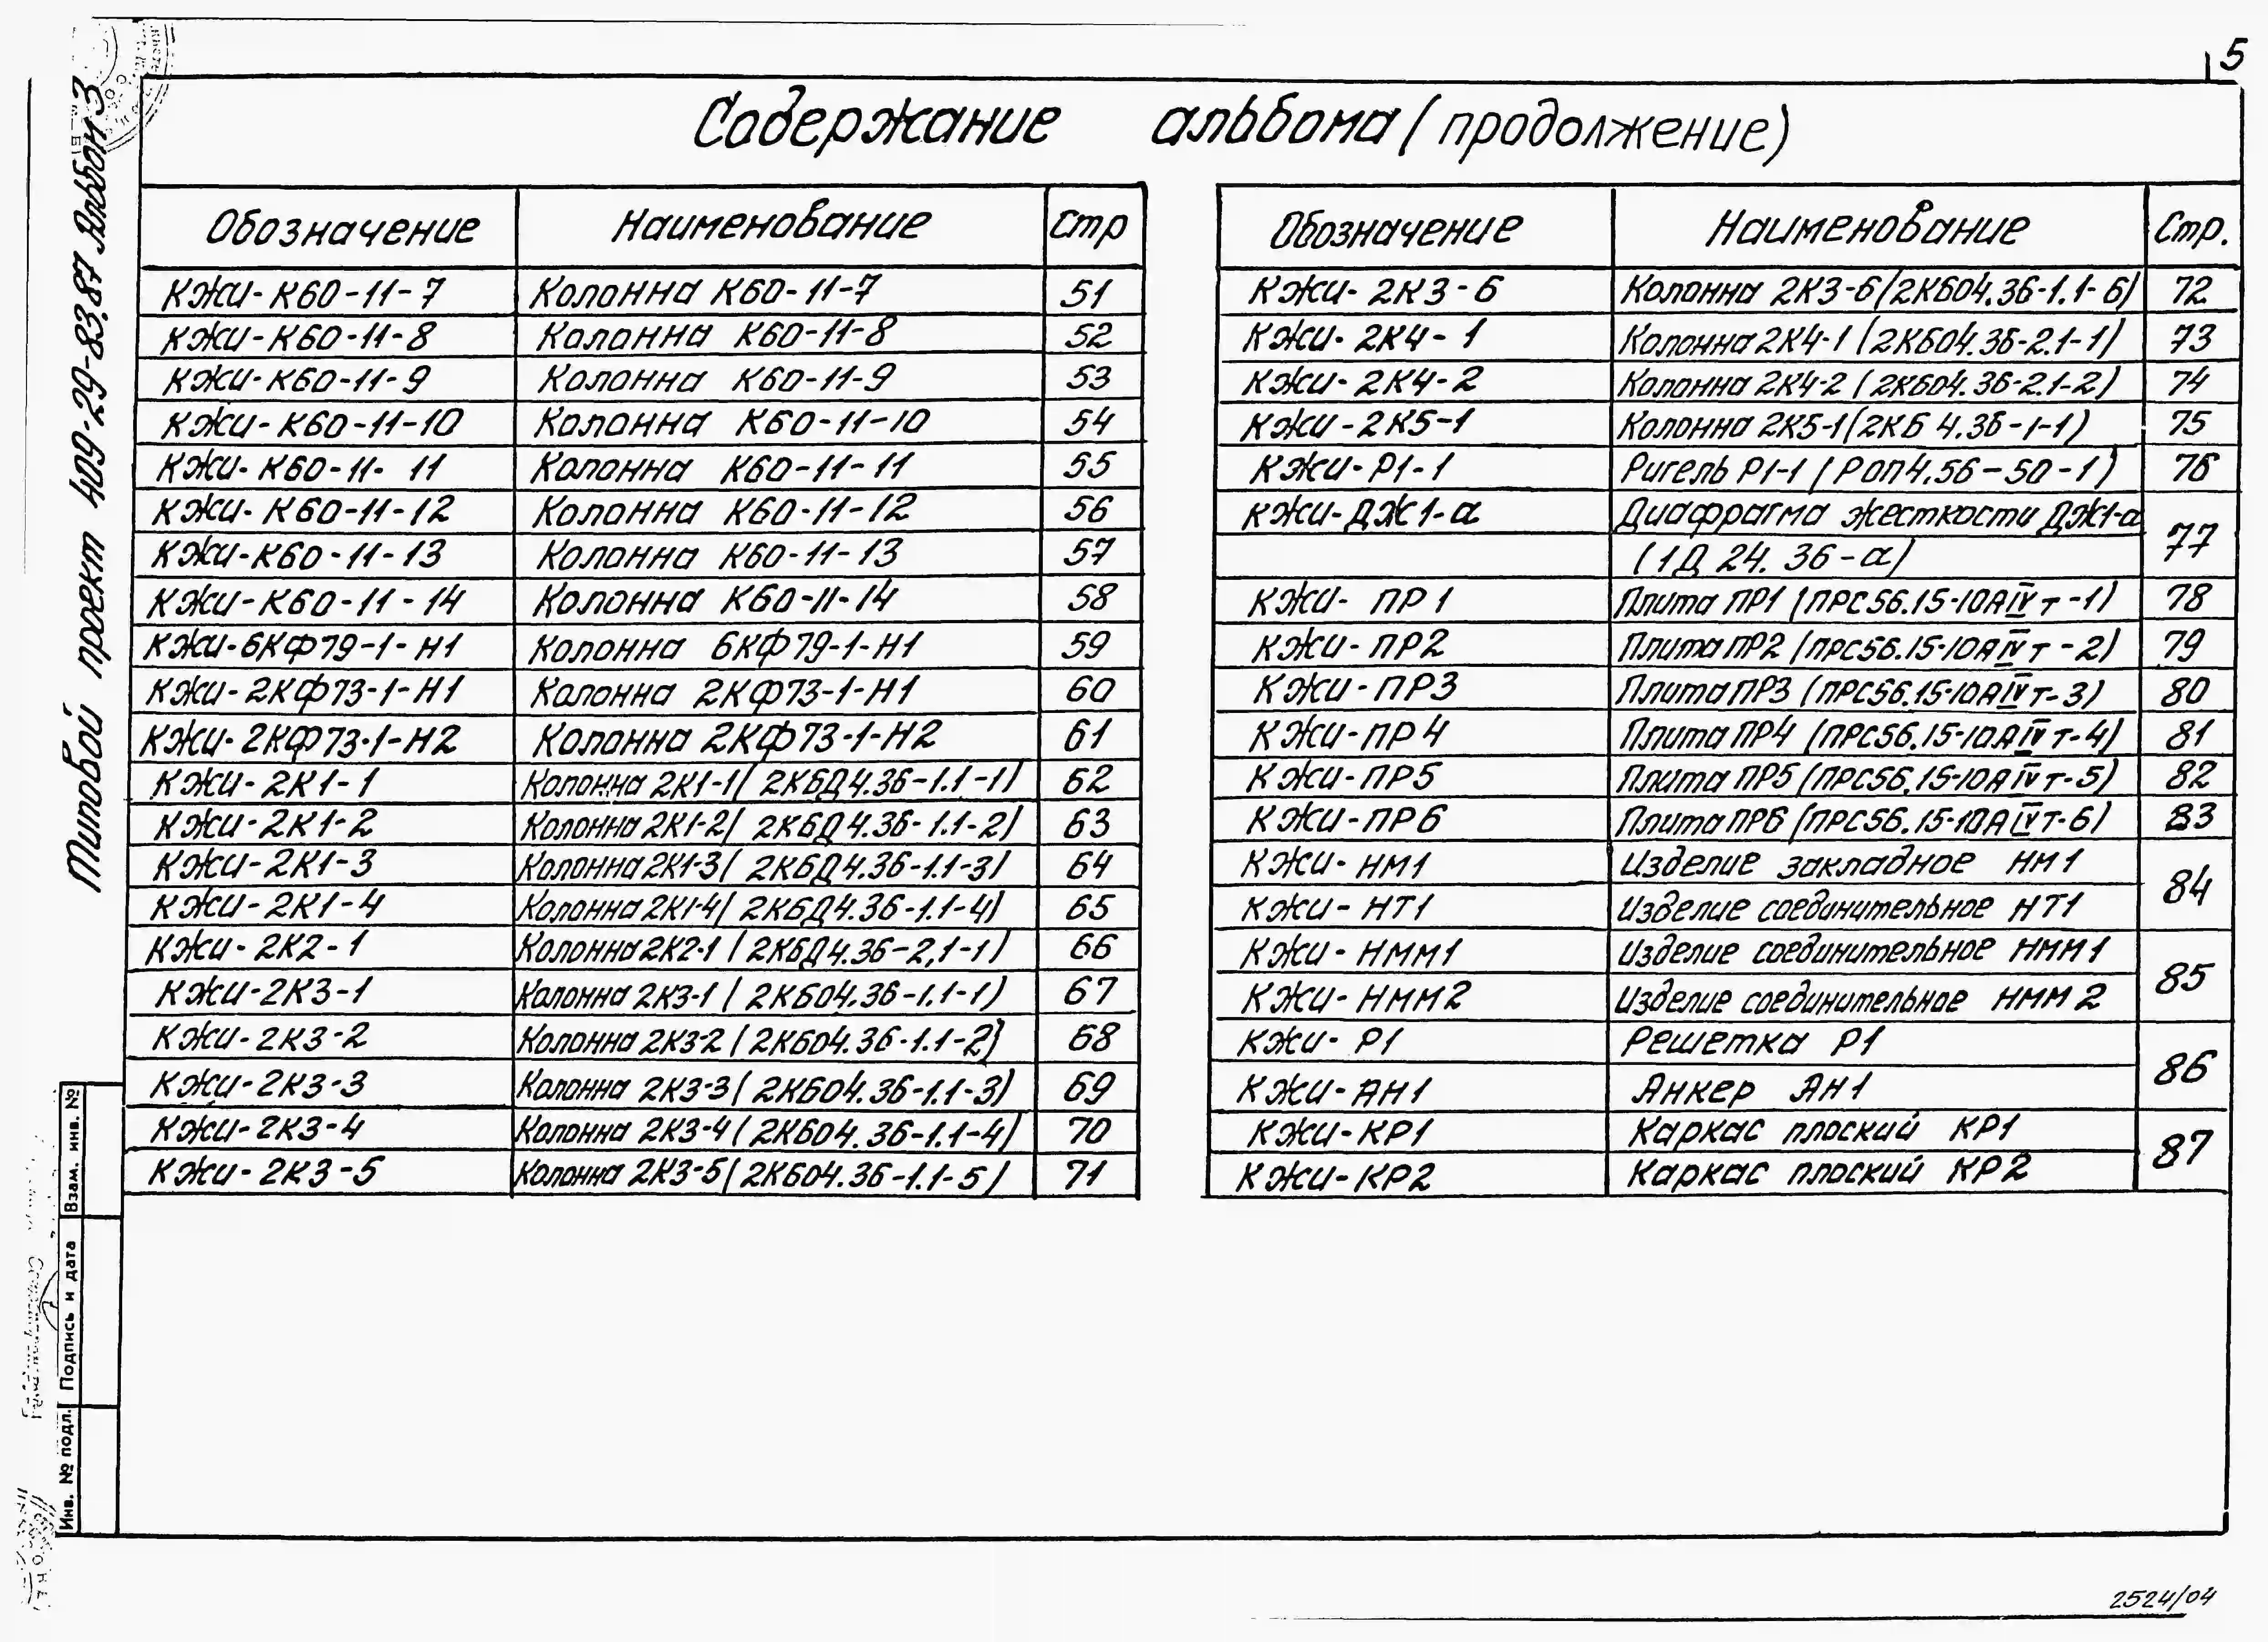 5
Содержание альбома (продолжение)
Типовой проект 409-29-83.87 Альбом 3
Обозначение Наименование Стр
КЖИ-К60-11-7 Колонна К60-11-7 51
КЖИ-К60-11-8 Колонна К60-11-8 52
КЖИ-К60-11-9 Колонна К60-11-9 53
КЖИ-К60-11-10 Колонна К60-11-10 54
КЖИ-К60-11-11 Колонна К60-11-11 55
КЖИ-К60-11-12 Колонна К60-11-12 56
КЖИ-К60-11-13 Колонна К60-11-13 57
КЖИ-К60-11-14 Колонна К60-11-14 58
КЖИ-6КФ79-1-Н1 Колонна 6КФ79-1-Н1 59
КЖИ-2КФ73-1-Н1 Колонна 2КФ73-1-Н1 60
КЖИ-2КФ73-1-Н2 Колонна 2КФ73-1-Н2 61
КЖИ-2К1-1 Колонна 2К1-1 (2КБД4.36-1.1-1) 62
КЖИ-2К1-2 Колонна 2К1-2 (2КБД4.36-1.1-2) 63
КЖИ-2К1-3 Колонна 2К1-3 (2КБД4.36-1.1-3) 64
КЖИ-2К1-4 Колонна 2К1-4 (2КБД4.36-1.1-4) 65
КЖИ-2К2-1 Колонна 2К2-1 (2КБД4.36-2,1-1) 66
КЖИ-2К3-1 Колонна 2К3-1 (2КБО4.36-1.1-1) 67
КЖИ-2К3-2 Колонна 2К3-2 (2КБО4.36-1.1-2) 68
КЖИ-2К3-3 Колонна 2К3-3 (2КБО4.36-1.1-3) 69
КЖИ-2К3-4 Колонна 2К3-4 (2КБО4.36-1.1-4) 70
КЖИ-2К3-5 Колонна 2К3-5 (2КБО4.36-1.1-5) 71
Обозначение Наименование Стр.
КЖИ-2К3-6 Колонна 2К3-6 (2КБО4.36-1.1-6) 72
КЖИ-2К4-1 Колонна 2К4-1 (2КБО4.36-2.1-1) 73
КЖИ-2К4-2 Колонна 2К4-2 (2КБО4.36-2.1-2) 74
КЖИ-2К5-1 Колонна 2К5-1 (2КБ 4.36-1-1) 75
КЖИ-Р1-1 Ригель Р1-1 (РОП4.56-50-1) 76
КЖИ-ДЖ1-а Диафрагма жесткости ДЖ1-а 77
(1Д 24.36-а)
КЖИ-ПР1 Плита ПР1 (ПРС56.15-10АIVт-1) 78
КЖИ-ПР2 Плита ПР2 (ПРС56.15-10АIVт-2) 79
КЖИ-ПР3 Плита ПР3 (ПРС56.15-10АIVт-3) 80
КЖИ-ПР4 Плита ПР4 (ПРС56.15-10АIVт-4) 81
КЖИ-ПР5 Плита ПР5 (ПРС56.15-10АIVт-5) 82
КЖИ-ПР6 Плита ПР6 (ПРС56.15-10АIVт-6) 83
КЖИ-НМ1 Изделие закладное НМ1 84
КЖИ-НТ1 Изделие соединительное НТ1
КЖИ-НММ1 Изделие соединительное НММ1 85
КЖИ-НММ2 Изделие соединительное НММ2
КЖИ-Р1 Решетка Р1 86
КЖИ-АН1 Анкер АН1
КЖИ-КР1 Каркас плоский КР1 87
КЖИ-КР2 Каркас плоский КР2
Взам. инв. №
Подпись и дата
Инв. № подл.
2524/04